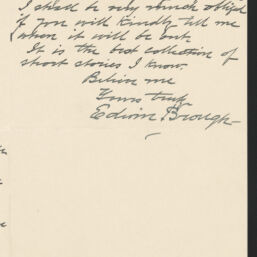 I shall be very much obliged
if you will kindly tell me
when it will be out.
It is the best collection of
short stories I know.
Believe me
Yours truly
Edwin Brough